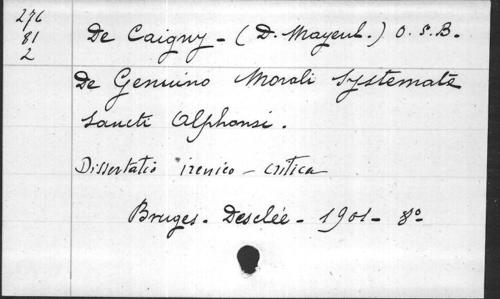 276
81
2
De Caigny - (D. Mayeul.) O. S. B.
De Genuino Morali Systemate
Sancti Alphonsi.
Dissertatio irenico - critica
Bruges. Desclée - 1901 - 8º